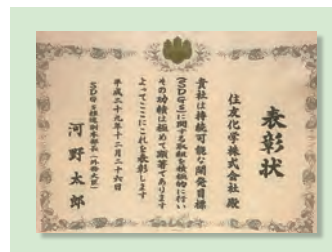 表彰状
住友化学株式会社 殿
貴社は持続可能な開発目標
(SDGs)に関する取組を積極的に行い
その功績は極めて顕著であります
よってここにこれを表彰します
平成二十九年十二月二十六日
SDGs推進副本部長(外務大臣)
河野太郎